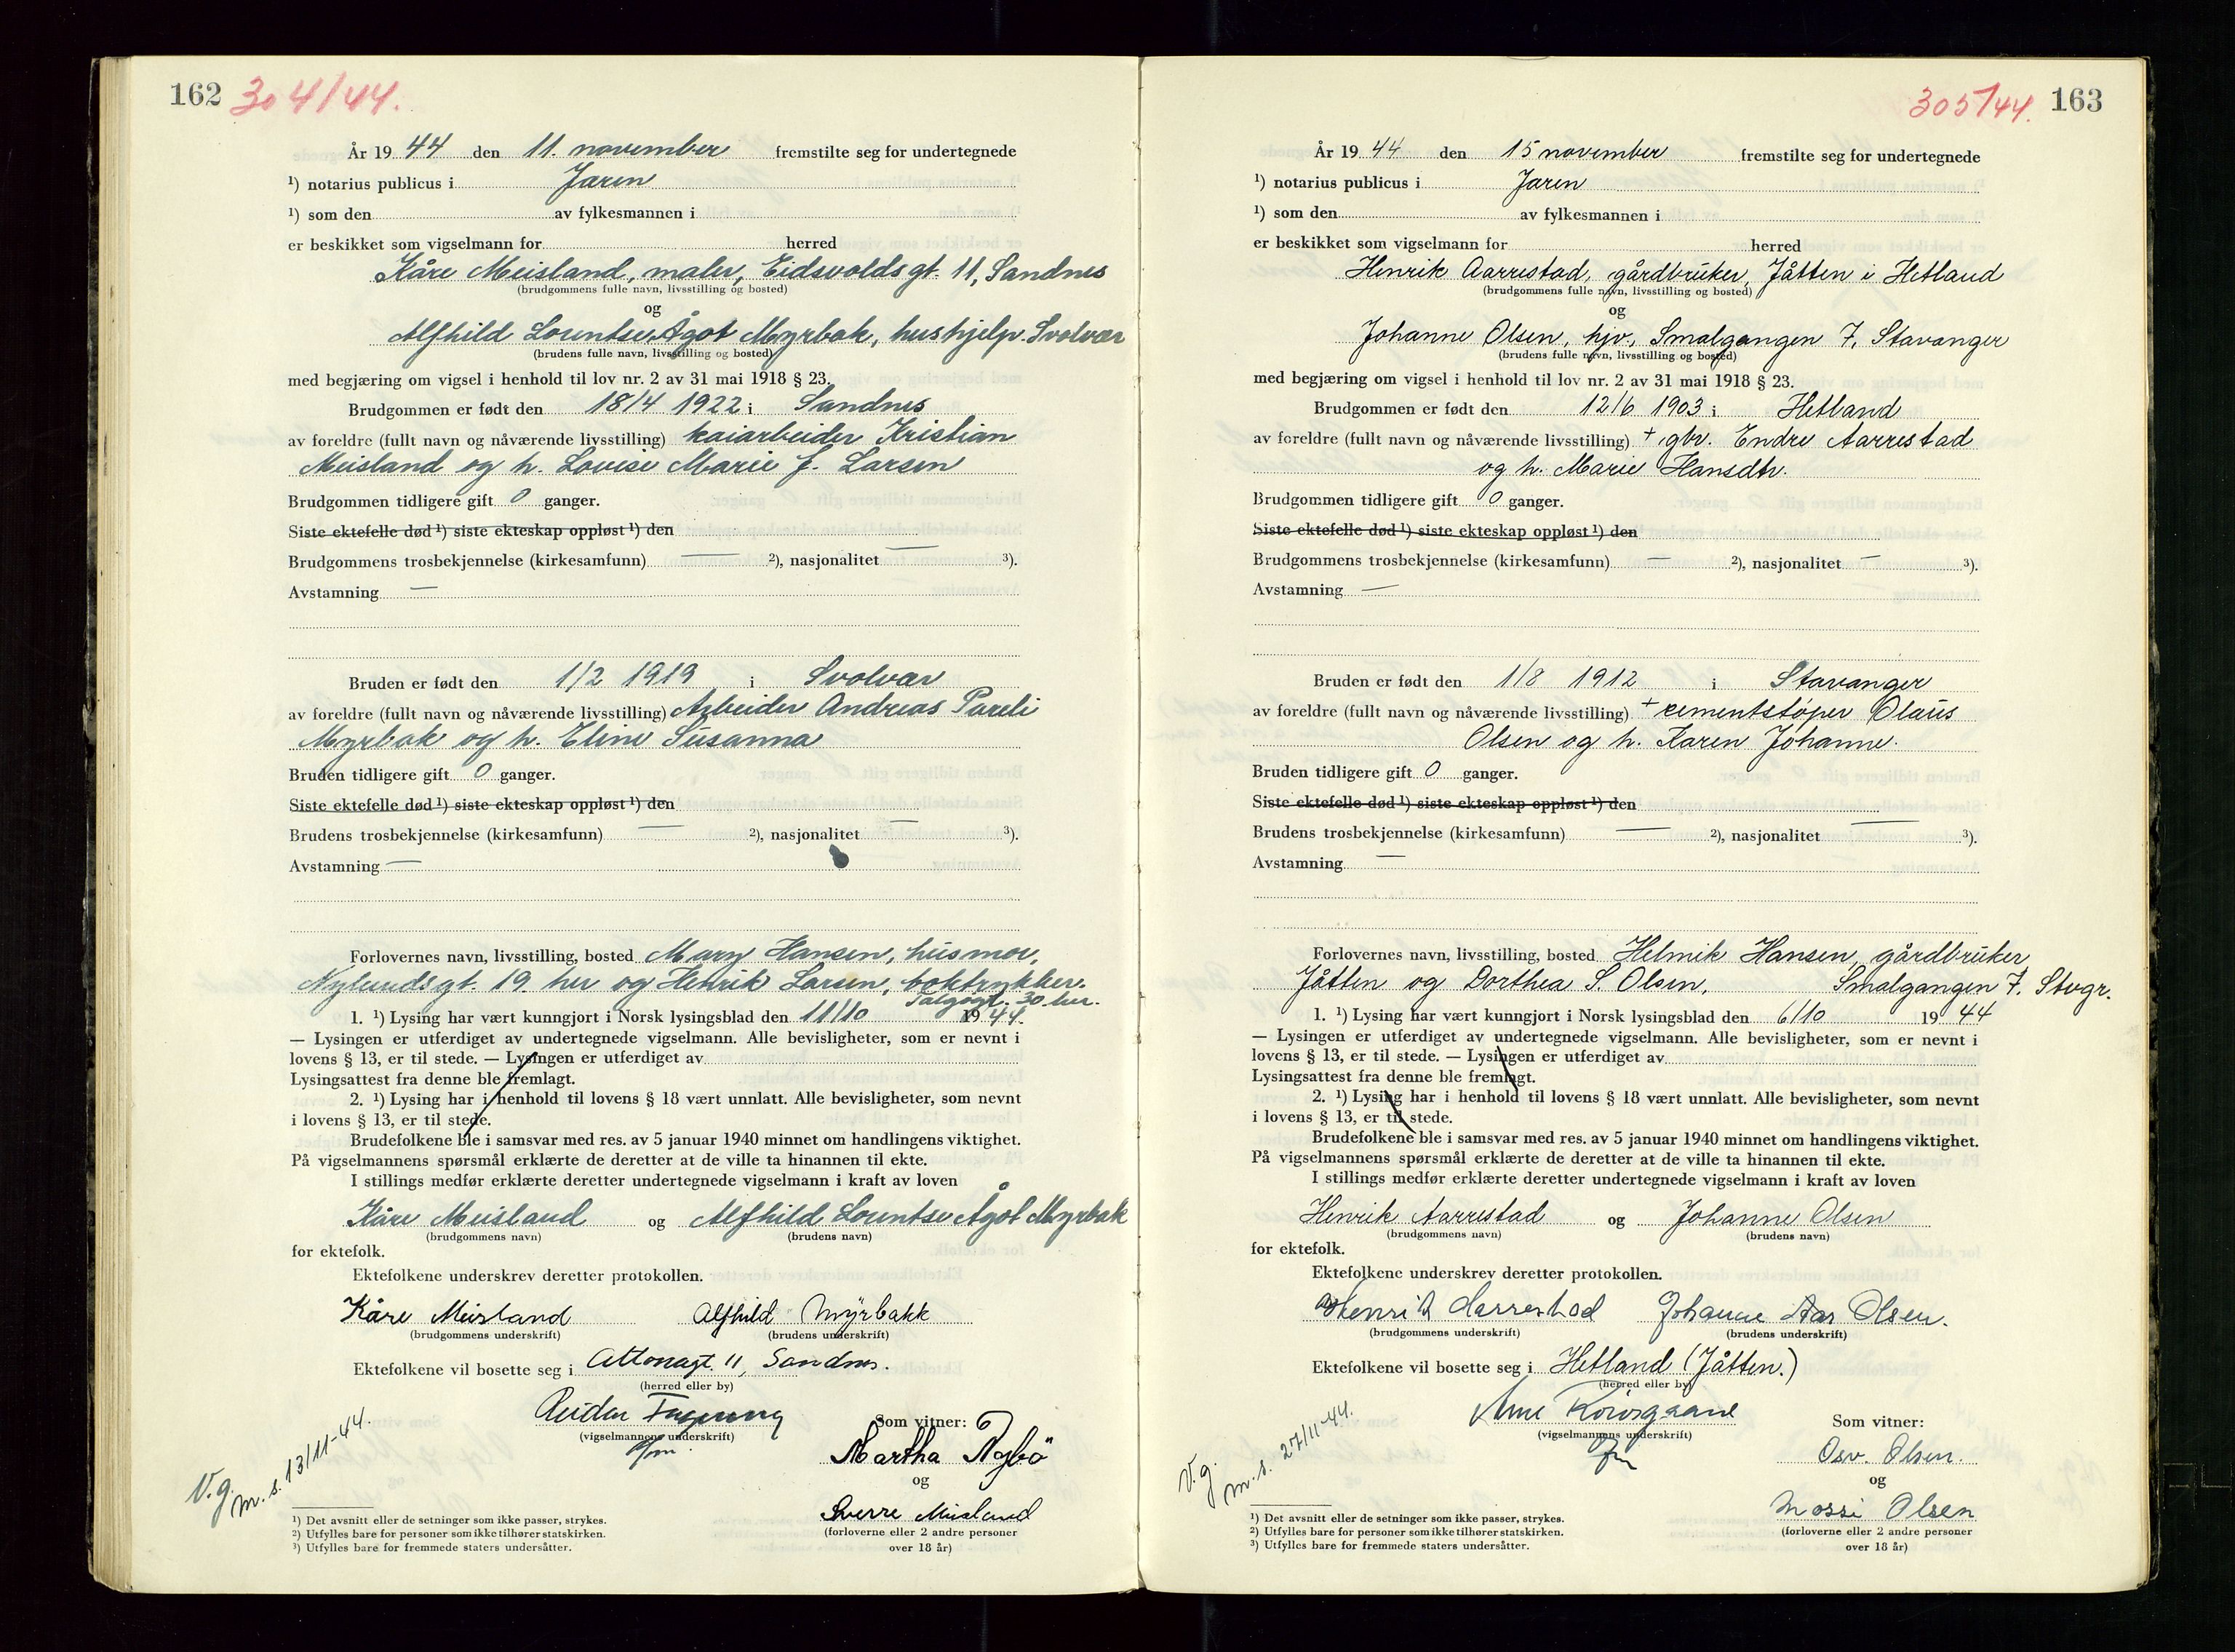 162 304/44.
År 19 44 den 11. november fremstilte seg for undertegnede
¹) notarius publicus i Jæren
¹) som den av fylkesmannen i
er beskikket som vigselmann for herred
Kåre Meisland, maler, Eidsvolds gt. 11, Sandnes
(brudgommens fulle navn, livsstilling og bosted)
og
Alfhild Lorentse Ågot Myrbak, hushjelp. Svolvær
(brudens fulle navn, livsstilling og bosted)
med begjæring om vigsel i henhold til lov nr. 2 av 31 mai 1918 § 23.
Brudgommen er født den 18/4 1922 i Sandnes
av foreldre (fullt navn og nåværende livsstilling) kaiarbeider Kristian
Meisland og h. Lovise Marie f. Larsen
Brudgommen tidligere gift 0 ganger.
Siste ektefelle død ¹) siste ekteskap oppløst ¹) den
Brudgommens trosbekjennelse (kirkesamfunn) — ²), nasjonalitet — ³).
Avstamning —
Bruden er født den 1/2 1919 i Svolvær
av foreldre (fullt navn og nåværende livsstilling) Arbeider Andreas Pareli
Myrbak og h. Eline Susanna
Bruden tidligere gift 0 ganger.
Siste ektefelle død ¹) siste ekteskap oppløst ¹) den
Brudens trosbekjennelse (kirkesamfunn) — ²), nasjonalitet — ³).
Avstamning —
Forlovernes navn, livsstilling, bosted Mary Hansen, husmor,
Nylundsgt. 19. her og Henrik Larsen, boktrykker.
30 her.
1. ¹) Lysing har vært kunngjort i Norsk lysingsblad den 11/10 19 44.
— Lysingen er utferdiget av undertegnede vigselmann. Alle bevisligheter, som er nevnt i
lovens § 13, er til stede. — Lysingen er utferdiget av
Lysingsattest fra denne ble fremlagt.
2. ¹) Lysing har i henhold til lovens § 18 vært unnlatt. Alle bevisligheter, som nevnt
i lovens § 13, er til stede.
Brudefolkene ble i samsvar med res. av 5 januar 1940 minnet om handlingens viktighet.
På vigselmannens spørsmål erklærte de deretter at de ville ta hinannen til ekte.
I stillings medfør erklærte deretter undertegnede vigselmann i kraft av loven
Kåre Meisland og Alfhild Lorentse Ågot Myrbak
(brudgommens navn) (brudens navn)
for ektefolk.
Ektefolkene underskrev deretter protokollen.
Kåre Meisland Alfhild Myrbakk
(brudgommens underskrift) (brudens underskrift)
Ektefolkene vil bosette seg i 11, Sandnes.
(herred eller by)
Reidar
(vigselmannens underskrift)
Som vitner:
Martha Nygbö
og
Sverre Meisland
(forloverne eller 2 andre personer
over 18 år)
V.g.
m.s. 13/11-44.
¹) Det avsnitt eller de setninger som ikke passer, strykes.
²) Utfylles bare for personer som ikke tilhører statskirken.
³) Utfylles bare for fremmede staters undersåtter.
305/44. 163
År 19 44 den 15 november fremstilte seg for undertegnede
¹) notarius publicus i Jæren
¹) som den av fylkesmannen i
er beskikket som vigselmann for herred
Henrik Aarrestad, gårdbruker, Jåtten i Hetland
(brudgommens fulle navn, livsstilling og bosted)
og
Johanne Olsen, hjv., Smalgangen 7, Stavanger
(brudens fulle navn, livsstilling og bosted)
med begjæring om vigsel i henhold til lov nr. 2 av 31 mai 1918 § 23.
Brudgommen er født den 12/6 1903 i Hetland
av foreldre (fullt navn og nåværende livsstilling) + gbr. Endre Aarrestad
og h. Marie Hansdtr.
Brudgommen tidligere gift 0 ganger.
Siste ektefelle død ¹) siste ekteskap oppløst ¹) den
Brudgommens trosbekjennelse (kirkesamfunn) — ²), nasjonalitet — ³).
Avstamning —
Bruden er født den 1/8 1912 i Stavanger
av foreldre (fullt navn og nåværende livsstilling) + cementstøper Olaus
Olsen og h. Karen Johanne.
Bruden tidligere gift 0 ganger.
Siste ektefelle død ¹) siste ekteskap oppløst ¹) den
Brudens trosbekjennelse (kirkesamfunn) — ²), nasjonalitet — ³).
Avstamning —
Forlovernes navn, livsstilling, bosted Helmik Hansen, gårdbruker
Jåtten og Dorthea S. Olsen, Smalgangen 7. Stvgr.
1. ¹) Lysing har vært kunngjort i Norsk lysingsblad den 6/10 19 44
— Lysingen er utferdiget av undertegnede vigselmann. Alle bevisligheter, som er nevnt i
lovens § 13, er til stede. — Lysingen er utferdiget av
Lysingsattest fra denne ble fremlagt.
2. ¹) Lysing har i henhold til lovens § 18 vært unnlatt. Alle bevisligheter, som nevnt
i lovens § 13, er til stede.
Brudefolkene ble i samsvar med res. av 5 januar 1940 minnet om handlingens viktighet.
På vigselmannens spørsmål erklærte de deretter at de ville ta hinannen til ekte.
I stillings medfør erklærte deretter undertegnede vigselmann i kraft av loven
Henrik Aarrestad og Johanne Olsen
(brudgommens navn) (brudens navn)
for ektefolk.
Ektefolkene underskrev deretter protokollen.
Henrik Aarrestad Johanne Olsen.
(brudgommens underskrift) (brudens underskrift)
Ektefolkene vil bosette seg i Hetland (Jåtten.)
(herred eller by)
Arne
(vigselmannens underskrift)
Som vitner:
Osv. Olsen.
og
Mossi Olsen
(forloverne eller 2 andre personer
over 18 år)
V.g.
m.s. 27/11-44.
¹) Det avsnitt eller de setninger som ikke passer, strykes.
²) Utfylles bare for personer som ikke tilhører statskirken.
³) Utfylles bare for fremmede staters undersåtter.